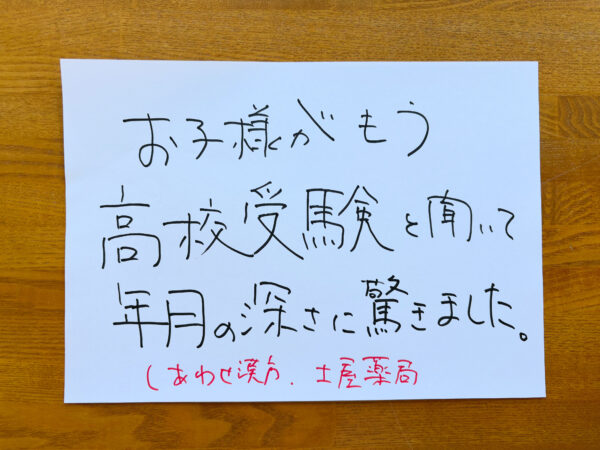 お子様がもう
高校受験と聞いて
年月の深さに驚きました。
しあわせ漢方、土屋薬局